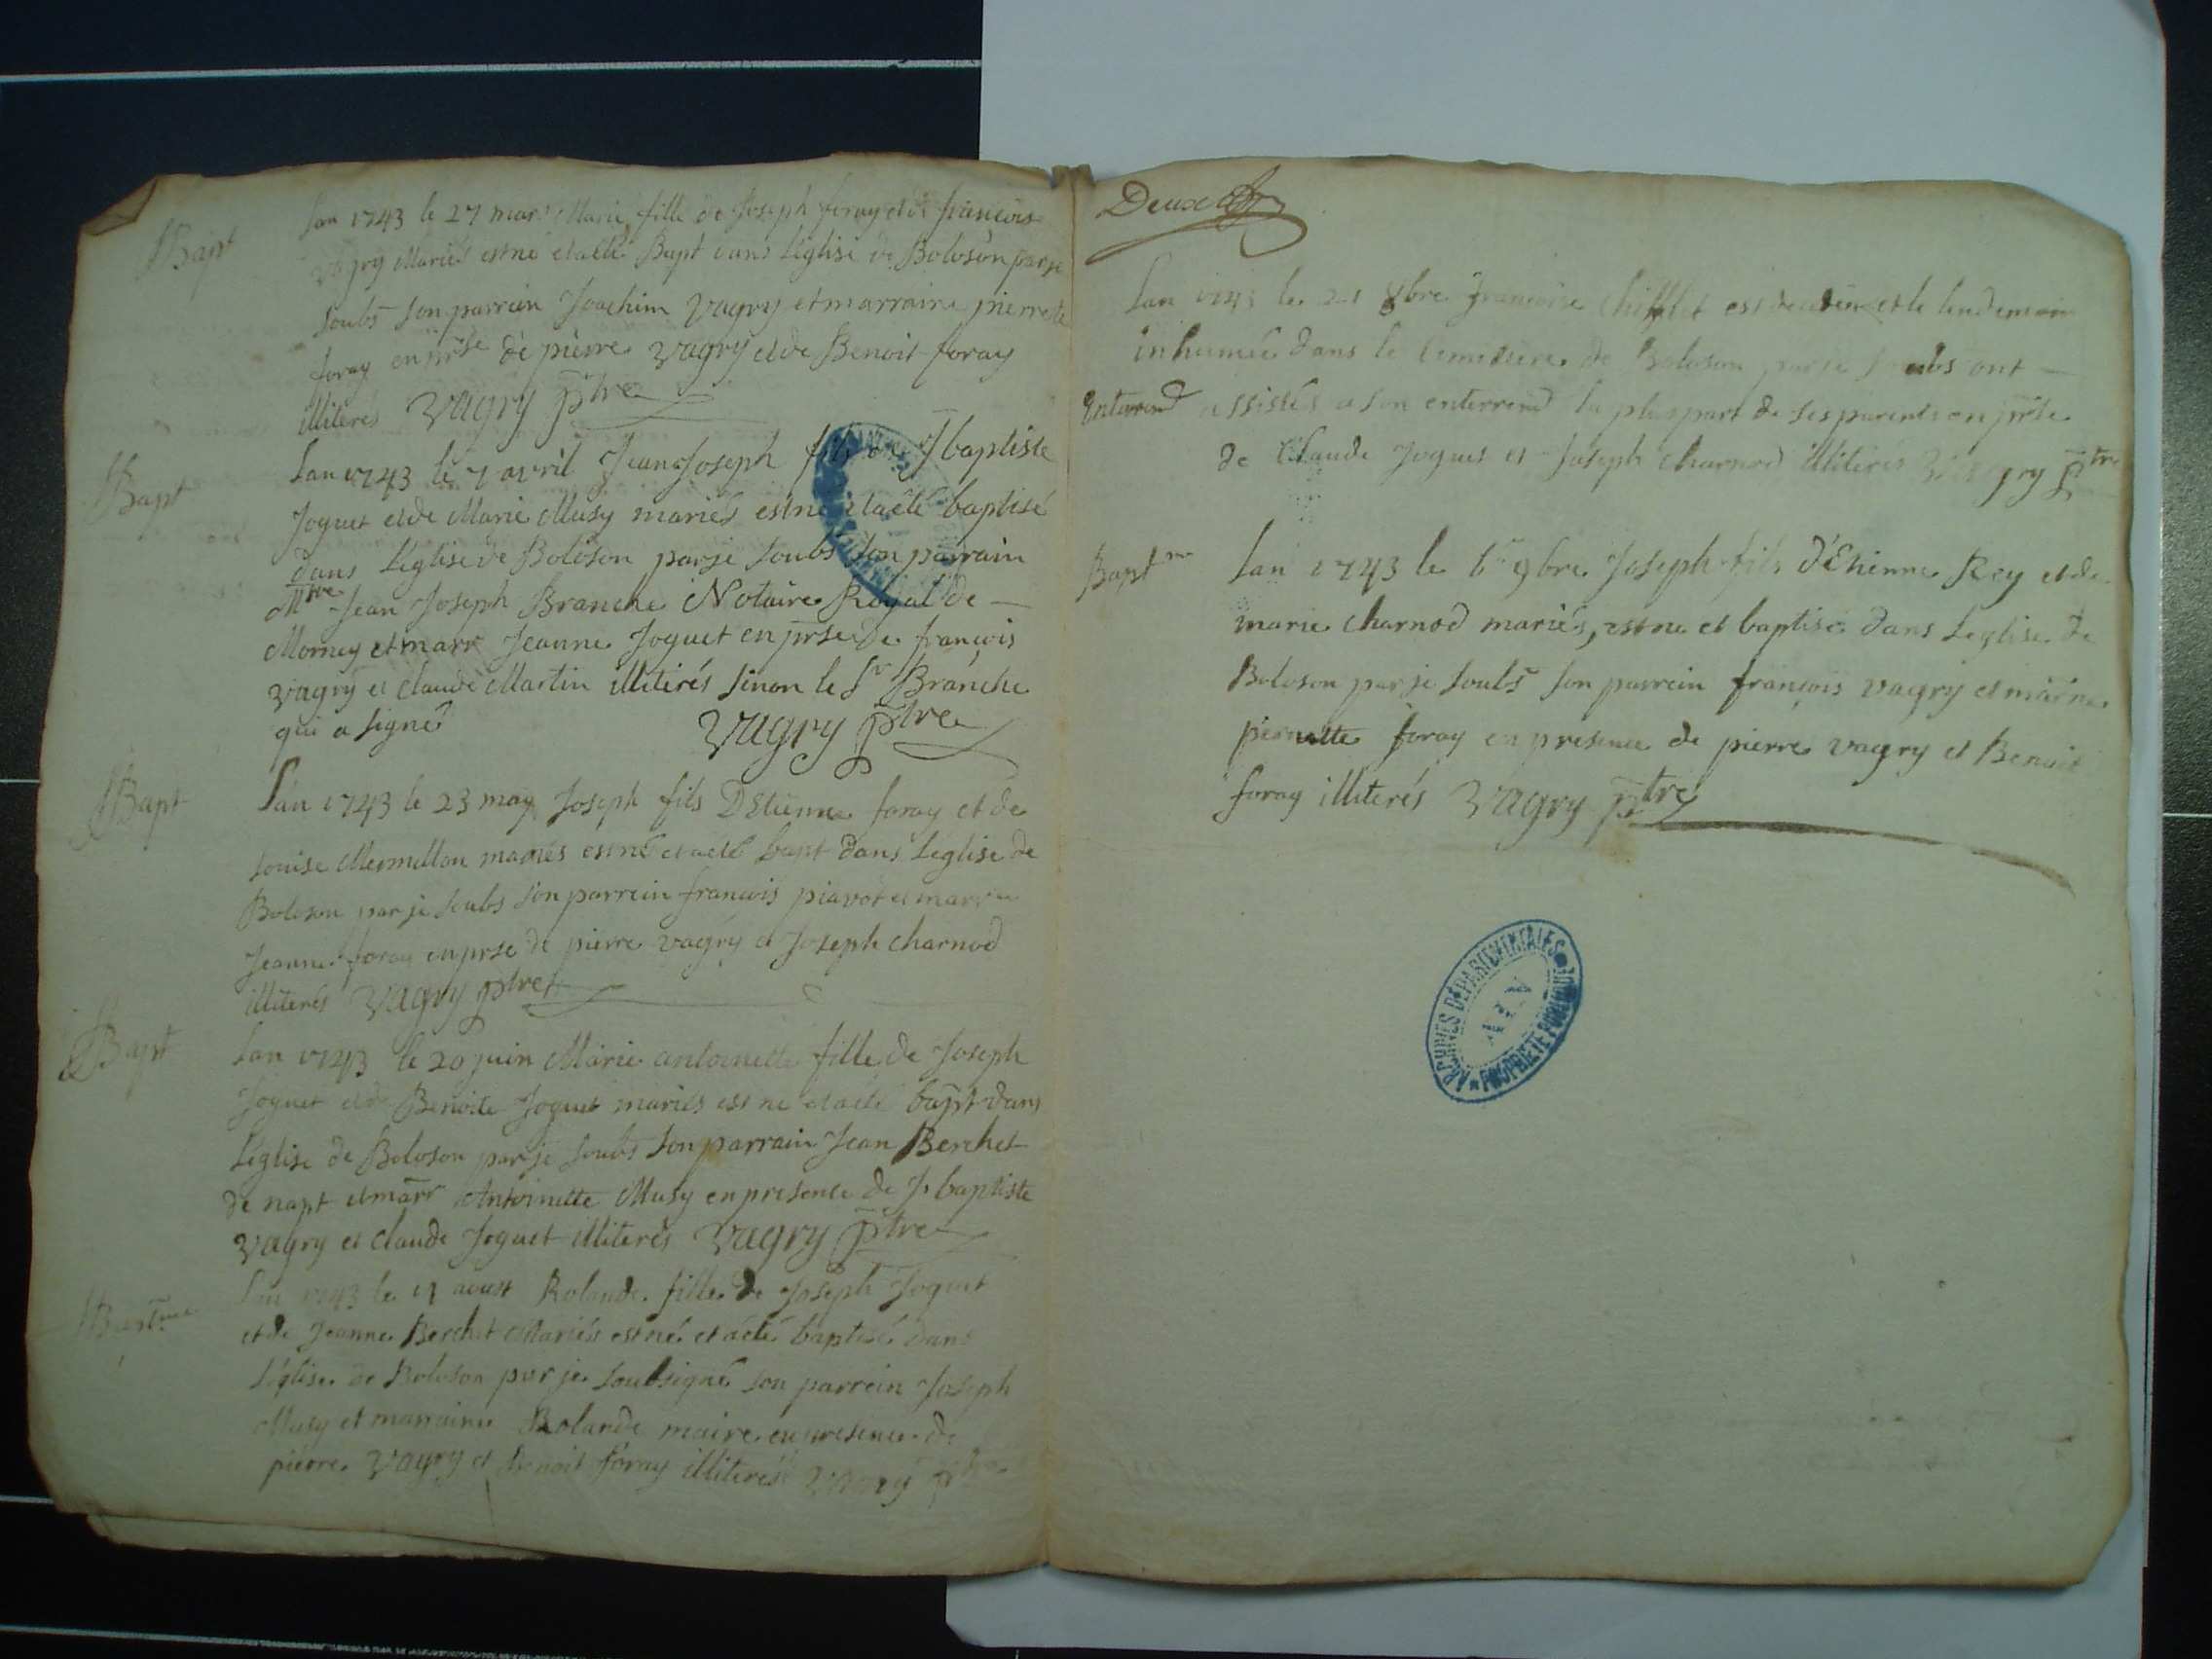 Bapt
Lan 1743 le 27 mars Marie fille de Joseph foray et de francoise
vagry Mariés est né et a été Bapt dans L'eglise de Boloson par je
soubs son parrein Joachim vagry et marraine pierrete
foray en prse de pierre vagry et de Benoit foray
illiterés vagry ptre
Bapt
Lan 1743 le 7 avril Jean Joseph fils de J baptiste
Joguet et de Marie Musy mariés est né et a été baptisé
dans L'eglise de Boloson par je soubs son parrain
Mtre Jean Joseph Branche Notaire Royal de
Mornay et marr Jeanne Joguet en prse de françois
vagry et claude Martin illiterés sinon le Sr Branche
qui a signé vagry ptre
Bapt
Lan 1743 le 23 may Joseph fils D Etienne foray et de
Louise Mermillon mariés est né et a été bapt dans L'eglise de
Boloson par je soubs son parrein francois piavot et marr
Jeanne foray en prse de pierre vagry et Joseph charnod
illiterés vagry ptre
Bapt
Lan 1743 le 20 juin Marie antoinette fille de Joseph
Joguet et de Benoite Joguet mariés est né et a été bapt dans
L'eglise de Boloson par je soubs son parrain Jean Berchet
de napt et marr Antoinette Musy en presence de J baptiste
vagry et claude Joguet illiterés vagry ptre
Bastme
Lan 1743 le aoust Rolande fille de Joseph Joguet
et de Jeanne Berchet Mariés est né et a été baptisé dans
L'eglise de Boloson par je soubsigné son parrein Joseph
Musy et marraine Rolande maire en presence de
pierre vagry et Benoit foray illiterés vagry ptre
Deux
Lan 1743 le 21 8bre francoise chifflet est et le lendemain
inhumée dans le Cimitiere de Boloson par je soubs ont
Enterend assistés a son enterrend la pluspart de ses parents en prse
de Claude Joguet et Joseph charnod illiterés vagry ptre
Baptme
Lan 1743 le 9bre Joseph fils d'Etienne Rey et de
marie charnod mariés, est né et baptisé dans L'eglise de
Boloson par je soubs son parrein françois vagry et marne
pierrette foray en presence de pierre vagry et Benoit
foray illiterés vagry ptre
ARCHIVES DÉPARTEMENTALES
AIN
PROPRIÉTÉ PUBLIQUE